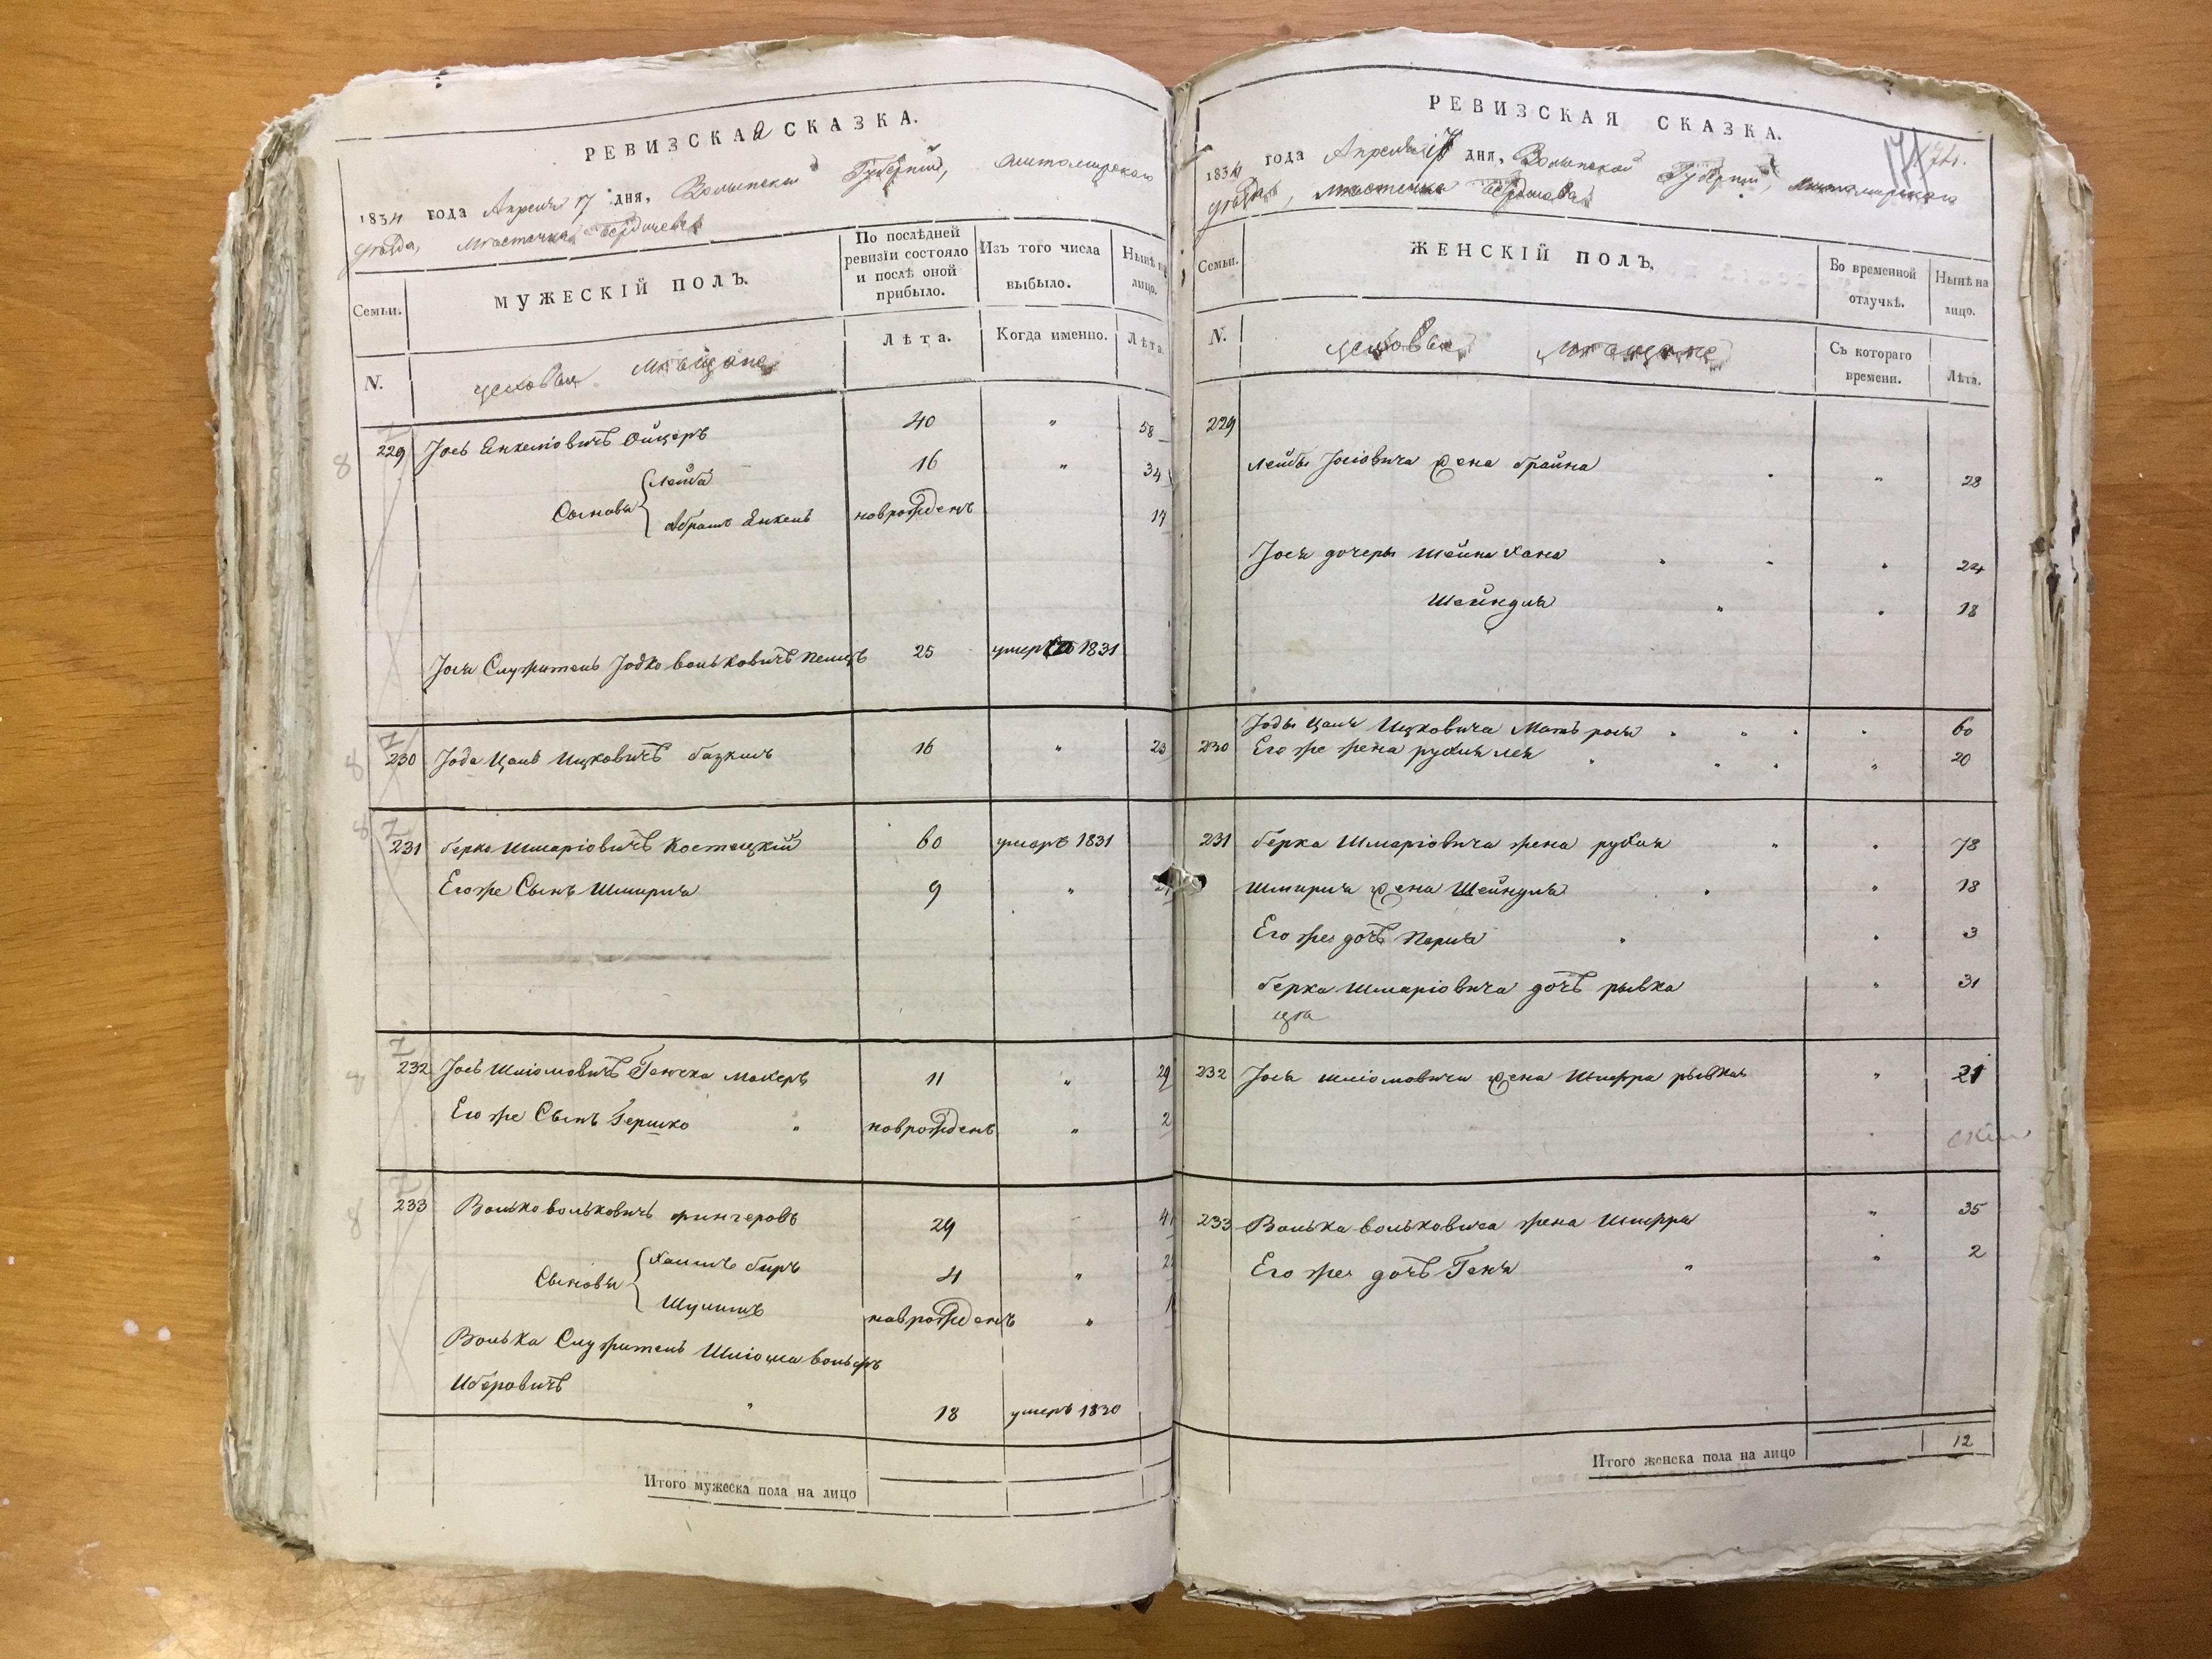 РЕВИЗСКАЯ СКАЗКА.
1834 года Апреля 17 дня, Волынской Губерніи, Житомирскаго
уѣзда, мѣстечка Бердичева
Семьи.
МУЖЕСКІЙ ПОЛЪ.
По послѣдней ревизіи состояло и послѣ оной прибыло.
Изъ того числа выбыло.
Нынѣ на лицо.
N.
цеховые мѣщане
Лѣта.
Когда именно.
Лѣта.
229 Іось Янкеліовичъ 40 " 58
Сыновья Лейба 16 " 34
Абрамъ Янкель новрожденъ 17
Іося Служитель Іодко Вольковичъ 25 умеръ 1831
230 Іода Цаль Ицковичъ 16 " 23
231 Берко Шмаріовичъ Костецкій 60 умеръ 1831
Его же Сынъ Шмирля 9 "
232 Іось Шліомовичъ 11 " 29
Его же Сынъ Гершко " новрожденъ " 2
233 Волько Вольковичъ 29 41
Сыновья Хаимъ Беръ 4 "
Шулимъ новрожденъ "
Волька Служитель Шліома Вольфъ
Иберовичъ
" 18 умеръ 1830
Итого мужеска пола на лицо
РЕВИЗСКАЯ СКАЗКА.
171
1834 года Апреля 17 дня, Волынской Губерніи, Житомирскаго
уѣзда, мѣстечка Бердичева
Семьи.
ЖЕНСКІЙ ПОЛЪ.
Во временной отлучкѣ.
Нынѣ на лицо.
N.
цеховые мѣщане
Съ котораго времени.
Лѣта.
229
Лейбы Іосіовича жена Брайна " 28
Іося дочеры Шейна Хана " 24
Шейндля " 18
Іоды Цаля Ицковича Мать Роля " 60
230 Его же жена Рухля Лея " 20
231 Берка Шмаріовича жена Рухля " 78
Шмирля жена Шейндля " 18
Его же дочь Перля " 3
Берка Шмаріовича дочь Рывка " 31
232 Іося Шліомовича жена Шифра Рывка " 21
233 Волька Вольковича жена Шифра " 35
Его же дочь Геня " 2
Итого женска пола на лицо 12